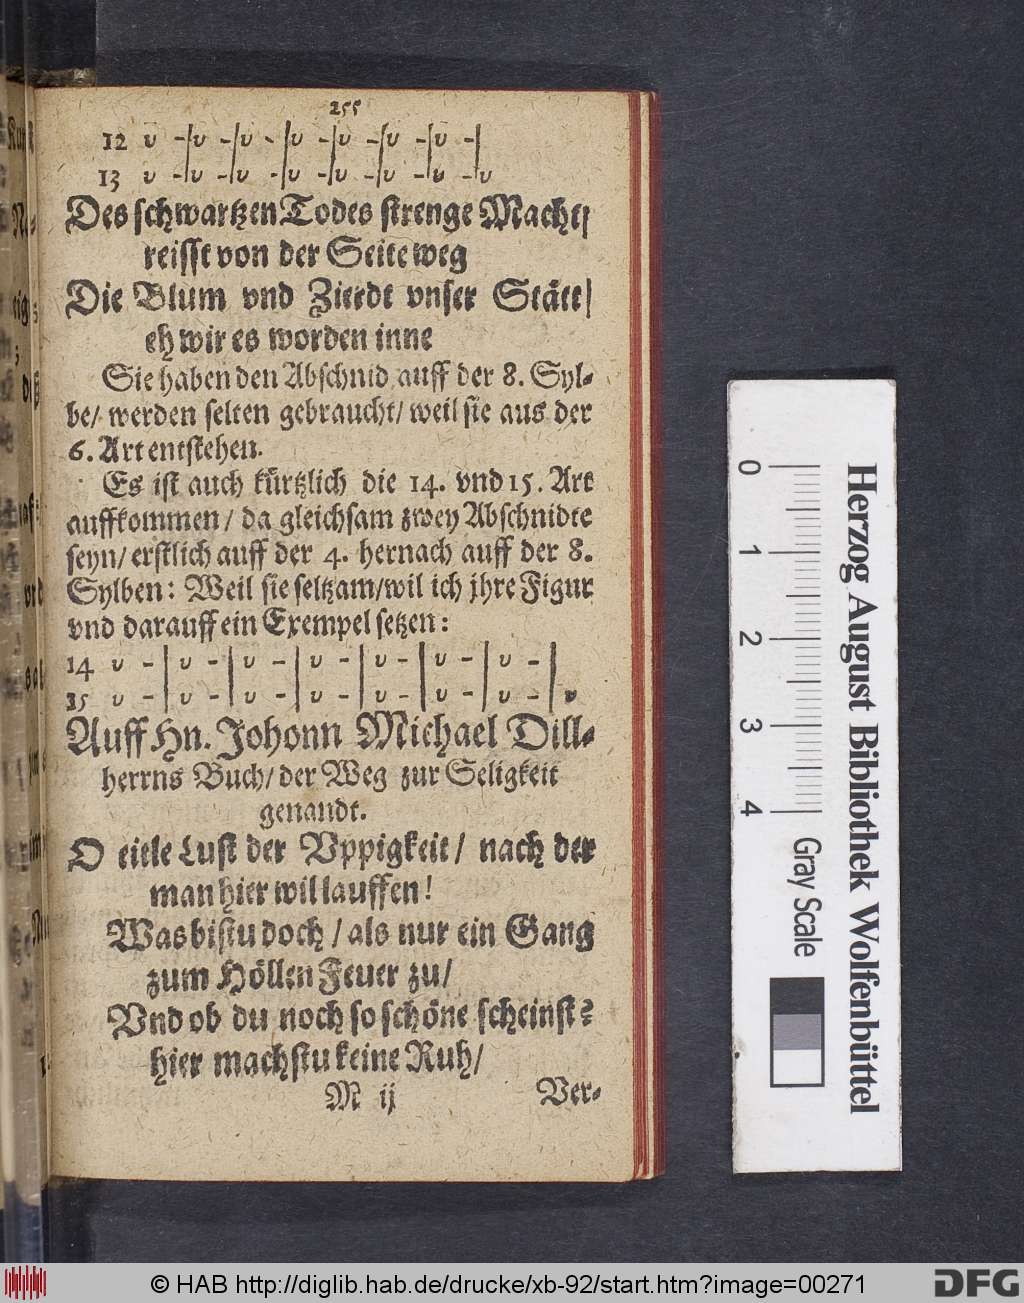 255
12 υ -|υ -|υ -|υ -|υ -|υ -|υ -|
13 υ -|υ -|υ -|υ -|υ -|υ -|υ -|υ
Des schwartzen Todes strenge Macht/
reisst von der Seite weg
Die Blum vnd Zierdt vnser Stätt/
eh wir es worden inne
Sie haben den Abschnid auff der 8. Syl-
be/ werden selten gebraucht/ weil sie aus der
6. Art entstehen.
Es ist auch kürtzlich die 14. vnd 15. Art
auffkommen/ da gleichsam zwey Abschnidte
seyn/ erstlich auff der 4. hernach auff der 8.
Sylben: Weil sie seltzam/ wil ich jhre Figur
vnd darauff ein Exempel setzen:
14 υ -|υ -|υ -|υ -|υ -|υ -|υ -|
15 υ -|υ -|υ -|υ -|υ -|υ -|υ -|υ
Auff Hn. Johonn Michael Dill-
herrns Buch/ der Weg zur Seligkeit
genandt.
O eitele Lust der Vppigkeit/ nach der
man hier wil lauffen!
Was bistu doch/ als nur ein Gang
zum Höllen Feuer zu/
Vnd ob du noch so schöne scheinst?
hier machstu keine Ruh/
M ij Ver-
0 1 2 3 4 Gray Scale
Herzog August Bibliothek Wolfenbüttel
© HAB http://diglib.hab.de/drucke/xb-92/start.htm?image=00271
DFG